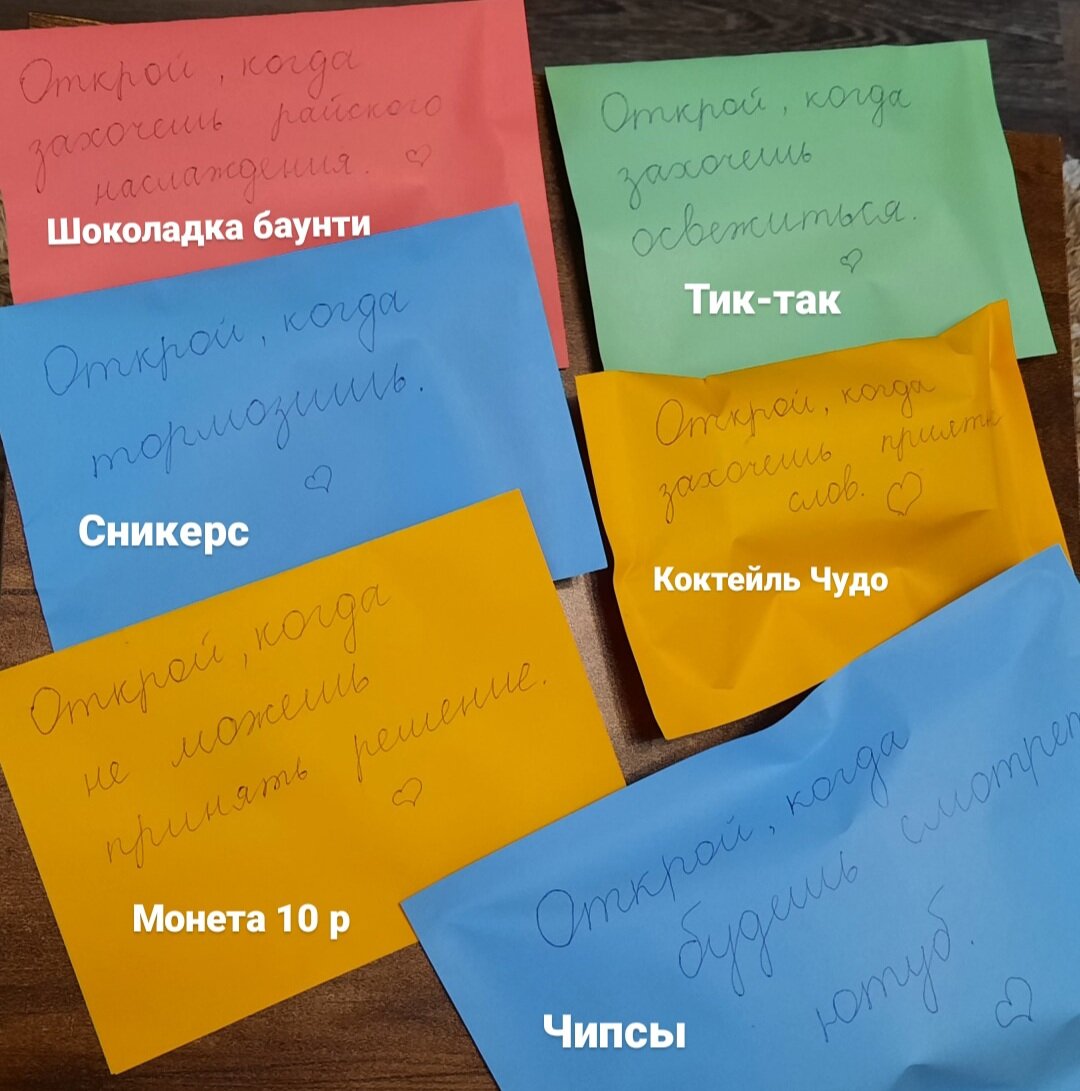 Открой, когда
захочешь райского
наслаждения.
Шоколадка баунти
Открой, когда
захочешь
освежиться.
Тик-так
Открой, когда
тормозишь.
Сникерс
Открой, когда
захочешь приятн
слов.
Коктейль Чудо
Открой, когда
не можешь
принять решение.
Монета 10 р
Открой, когда
будешь смотрет
ютуб.
Чипсы